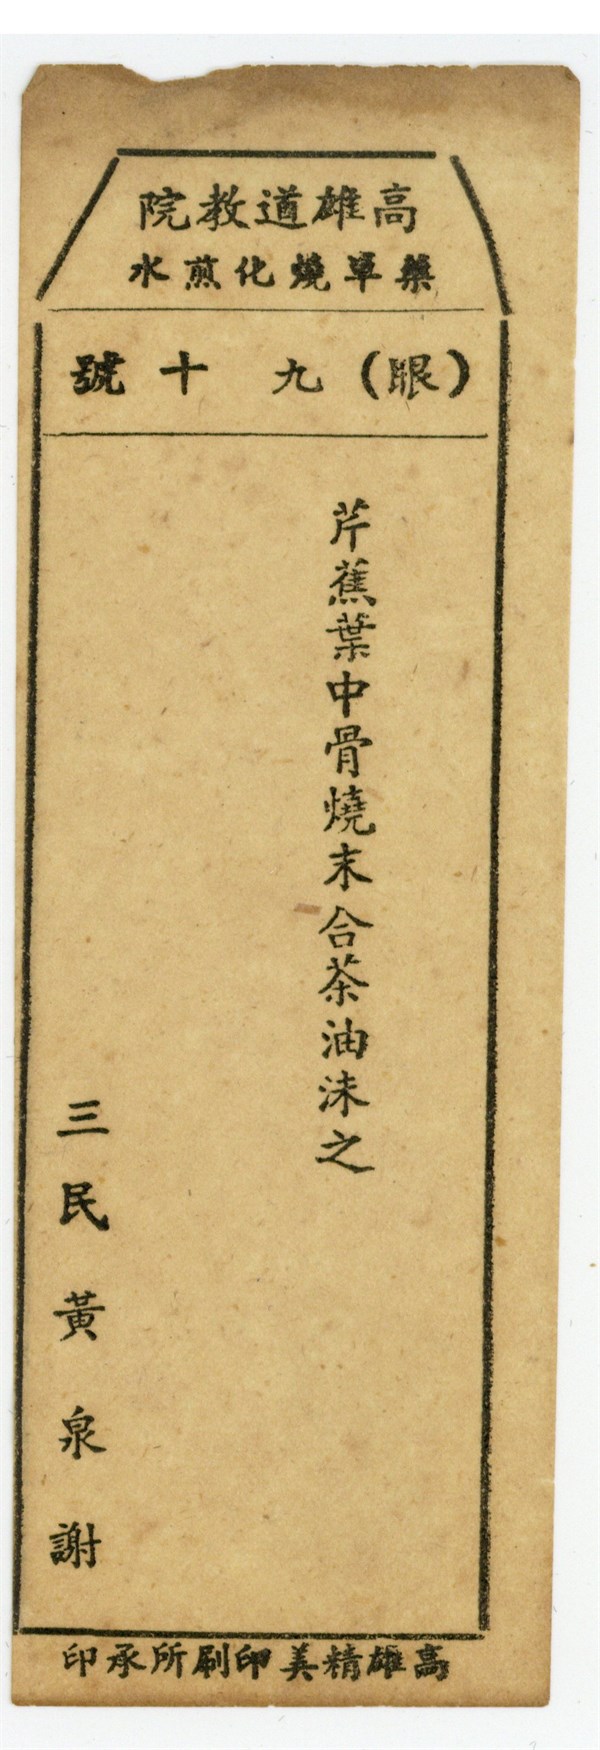 高雄道教院
藥單燒化煎水
（眼）九十號
芹蕉葉中骨燒末合茶油沫之
三民黃泉謝
高雄精美印刷所承印